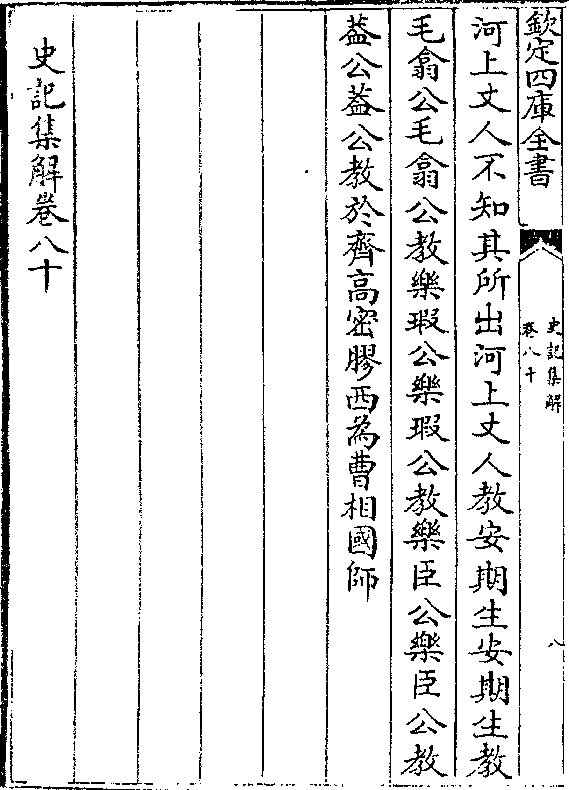 欽定四庫全書
史記集解
卷八十
八
河上丈人不知其所出河上丈人教安期生安期生教
毛翕公毛翕公教樂瑕公樂瑕公教樂臣公樂臣公教
葢公葢公教於齊高密膠西為曹相國師
史記集解卷八十